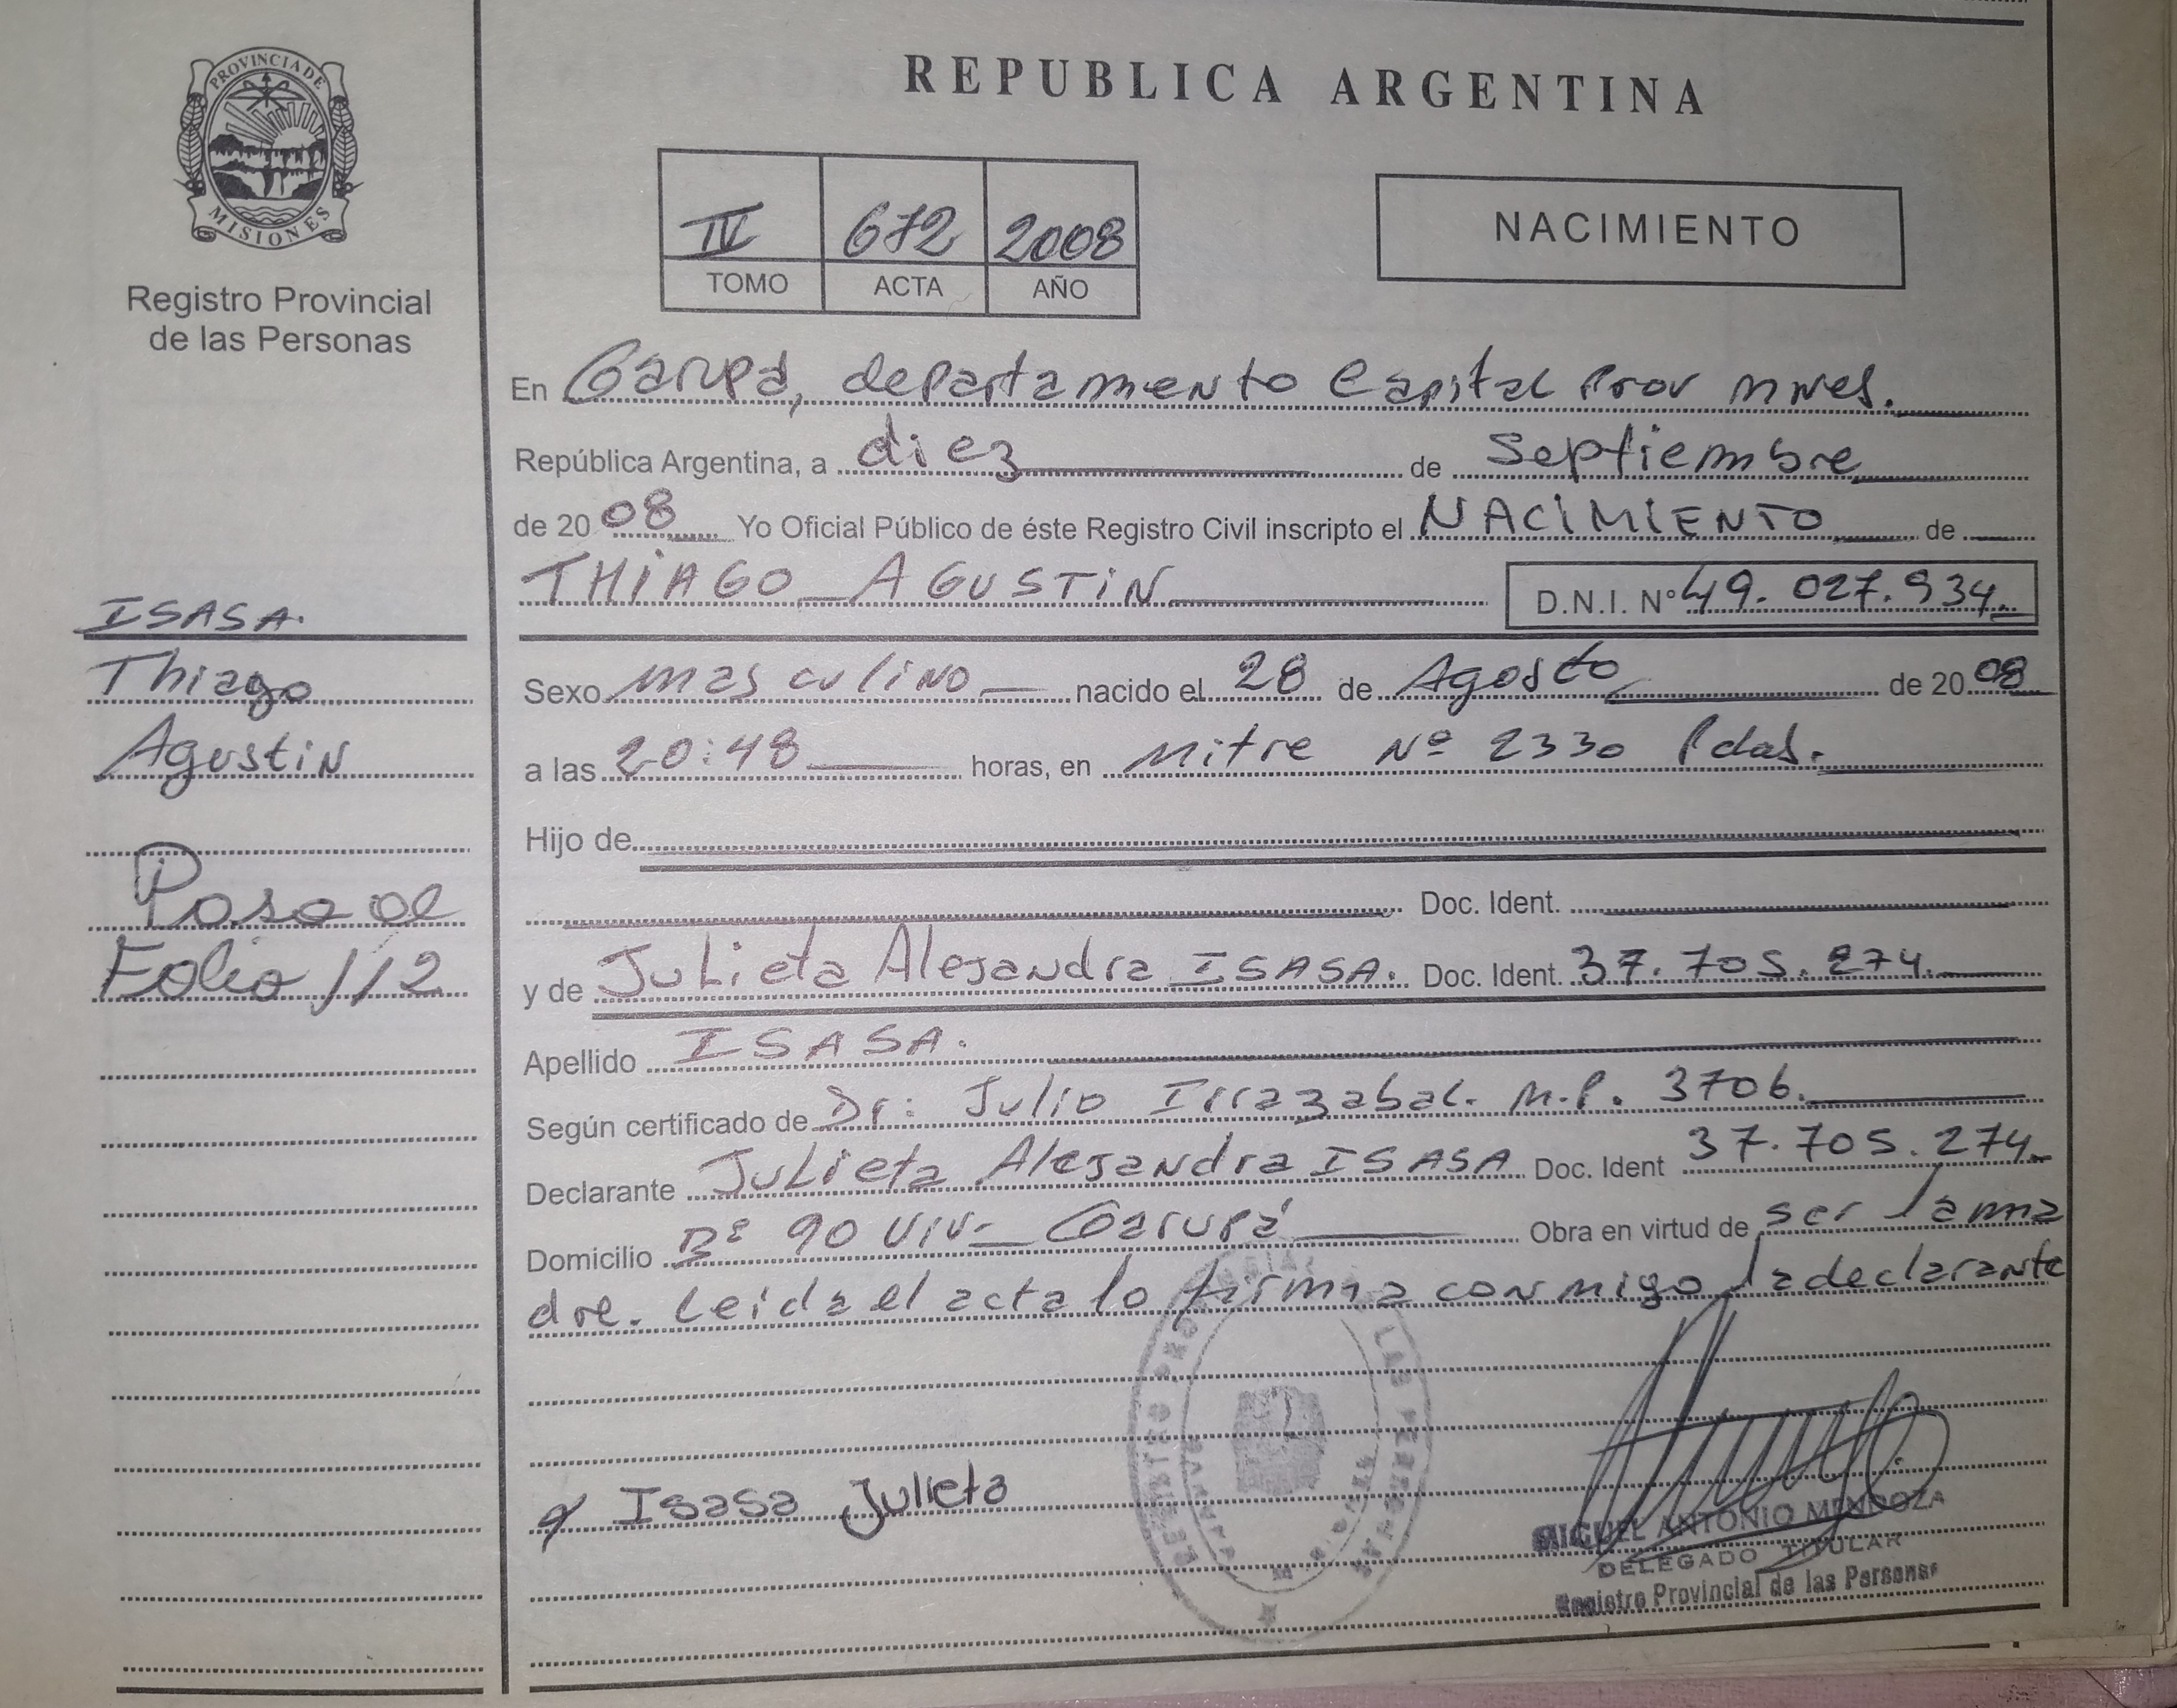 REPUBLICA ARGENTINA
PROVINCIA DE
MISIONES
Registro Provincial
de las Personas
IV 672 2008
TOMO ACTA AÑO
NACIMIENTO
En Garupá, departamento Capital Prov Mnes.
República Argentina, a diez de Septiembre
de 2008 Yo Oficial Público de éste Registro Civil inscripto el NACIMIENTO de
THIAGO AGUSTIN D.N.I. Nº 49.027.934
ISASA.
Thiago
Agustin
Pasa al
Folio 112
Sexo masculino nacido el 28 de Agosto de 2008
a las 20:48 horas, en Mitre Nº 2330 Pdas.
Hijo de
Doc. Ident.
y de Julieta Alejandra ISASA. Doc. Ident. 37.705.274.
Apellido ISASA.
Según certificado de Dr: Julio Irrazabal. M.P. 3706.
Declarante Julieta Alejandra ISASA Doc. Ident 37.705.274
Domicilio Bº 90 Viv- Garupá Obra en virtud de ser la ma
dre. Leida el acta lo firma conmigo la declarante
Isasa Julieta
MIGUEL ANTONIO MENDOZA
DELEGADO TITULAR
Registro Provincial de las Personas